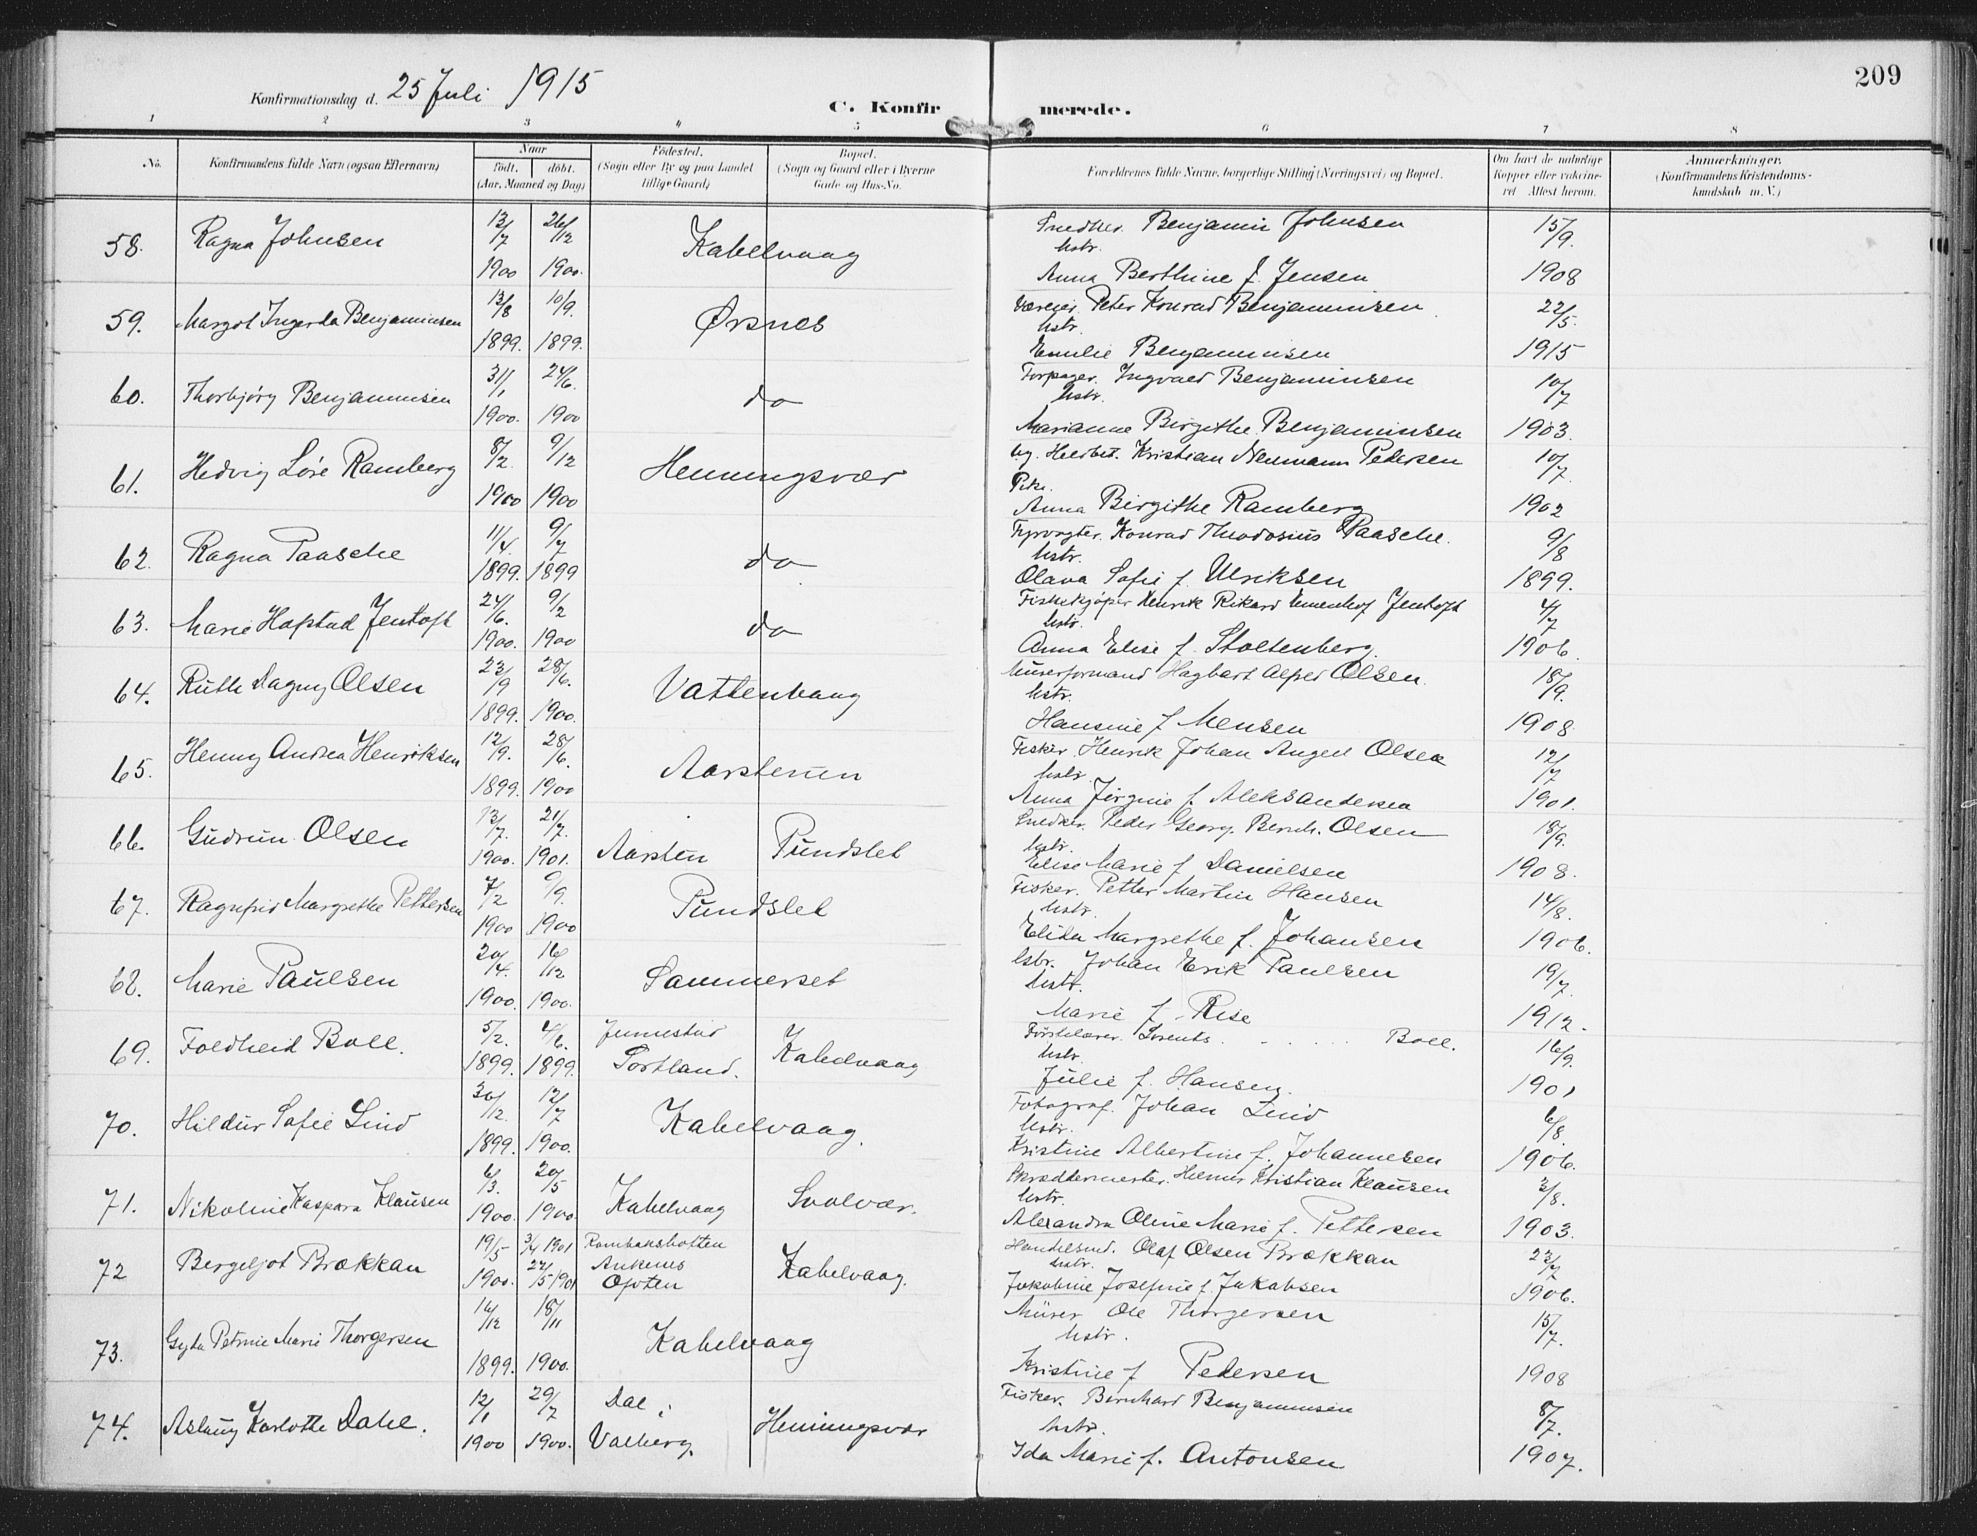 Konfirmationsdag d. 25 Juli 1915
C. Konfirmerede.
209
1 2 3 4 5 6 7 8
No. Konfirmandens fulde Navn (ogsaa Efternavn) Naar Födested. Bopæl. Forældrenes fulde Navne, borgerlige Stilling (Næringsvei) og Bopæl. Om havt de naturlige Anmærkninger.
födt. döbt. (Sogn eller By og paa Landet (Sogn og Gaard eller i Byerne Kopper eller vaccine- (Konfirmandens Kristendoms-
(Aar, Maaned og Dag) tillige Gaard) Gade og Hus-No. ret Attest herom. kundskab m. V.)
58. Ragna Johnsen 13/7 1900 26/12 1900. Kabelvaag Snedker. Benjamin Johnsen 15/9. 1908
hstr.
Anna Berthine f. Jensen
59. Margot Ingerda Benjaminsen 13/8 1899. 10/9. 1899. Ørsnes Væreier. Peter Konrad Benjaminsen 22/5. 1915
hstr.
Emilie Benjaminsen
60. Thorbjørg Benjaminsen 31/1 1900. 24/6. 1900 do Forpagter. Ingvald Benjaminsen 10/7 1903.
hstr.
Marianne Birgithe Benjaminsen
61. Hedvig Lóve Ramberg 8/2 1900 9/12 1900 Henningsvær Kristian Neumann Pedersen 10/7. 1902
Pike.
Anna Birgithe Ramberg
62. Ragna Paasche 11/4. 1899. 9/7 1899 do Fyrvogter. Konrad Theodosius Paasche. 9/8 1899.
hstr.
Olava Sofie f. Ulriksen
63. Marie Hafstad Jentoft 24/6. 1900. 9/2 1900 do Fiskekjøper Henrik Rikard Jentoft 4/7 1906.
hstr.
Anna Elise f. Stoltenberg.
64. Ruth Dagny Olsen 23/9 1899. 28/6. 1900. Vatterbaag Murerformand Hagbart Alfred Olsen. 18/9. 1908.
hstr.
Hansine f Mensen
65. Henny Andrea Henriksen 12/9. 1899. 28/6. 1900 Aarstenen Fisker. Henrik Johan Angell Olsen 12/7 1901.
hstr.
Anna Jørgine f. Aleksandersen
66. Gudrun Olsen 13/7. 1900. 21/7. 1901. Aarsten Pundslet Snedker. Peder Georg. Bernh. Olsen 18/9. 1908.
hstr.
Elise Marie f Danielsen
67. Ragnfrid Margrethe Pettersen 7/2 1900 9/9. 1900 Pundslet Fisker. Petter Martin Hansen 14/8. 1906.
hstr.
Elida Margrethe f. Johansen
68. Marie Paulsen 20/4. 1900. 16/12 1900. Sammerset Johan Erik Paulsen 19/7. 1912.
hstr.
Marie f. Rise
69. Foldheid Boll. 5/2. 1899. 4/6. 1899. Jennestad Sortland. Kabelvaag Førstelærer. Lorents . . . . . Boll. 16/9. 1901
hstr.
Julie f. Hansen.
70. Hildur Sofie Lind 30/12. 1899. 12/7 1900. Kabelvaag. Fotograf. Johan Lind 6/8. 1906.
hstr.
Kristine Albertine f. Johannesen
71. Nikoline Kaspara Klausen 6/3. 1900. 20/5 1900. Kabelvaag Svolvær. Skræddermester. Helmer Kristian Klausen 3/8. 1903.
hstr.
Alexandra Oline Marie f. Pettersen
72 Bergljot Brækkan 19/5 1900. 3/4 1901 27/5 1901 Rombaksbotten Ankenes Ofoten Kabelvaag. Handelsmd. Olaf Olsen Brækkan 23/7 1906.
hstr.
Jakobine Josefine f. Jakobsen
73. Gyda Petrine Marie Thorgersen 16/12 1899. 18/11 1900. Kabelvaag Murer Ole Thorgersen 15/7. 1908
hstr.
Kristine f Pedersen
74. Aslaug Karlotte Dahl. 12/1 1900 29/7 1900. Dal i Valberg. Henningsvær Fisker. Bernhard Benjaminsen 8/7. 1907.
hstr.
Ida Marie f. Antonsen